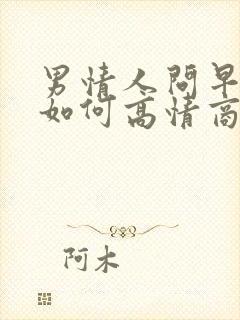 男情人问早
如何高情商
阿木